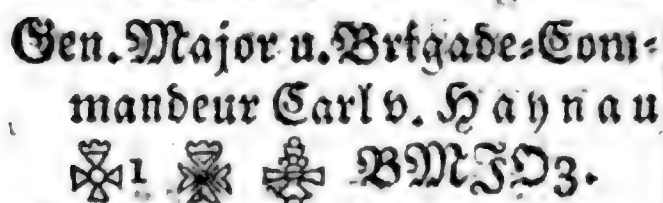 Gen. Major u. Brigade-Com-
mandeur Carl v. Haynau
1 BMJO3.